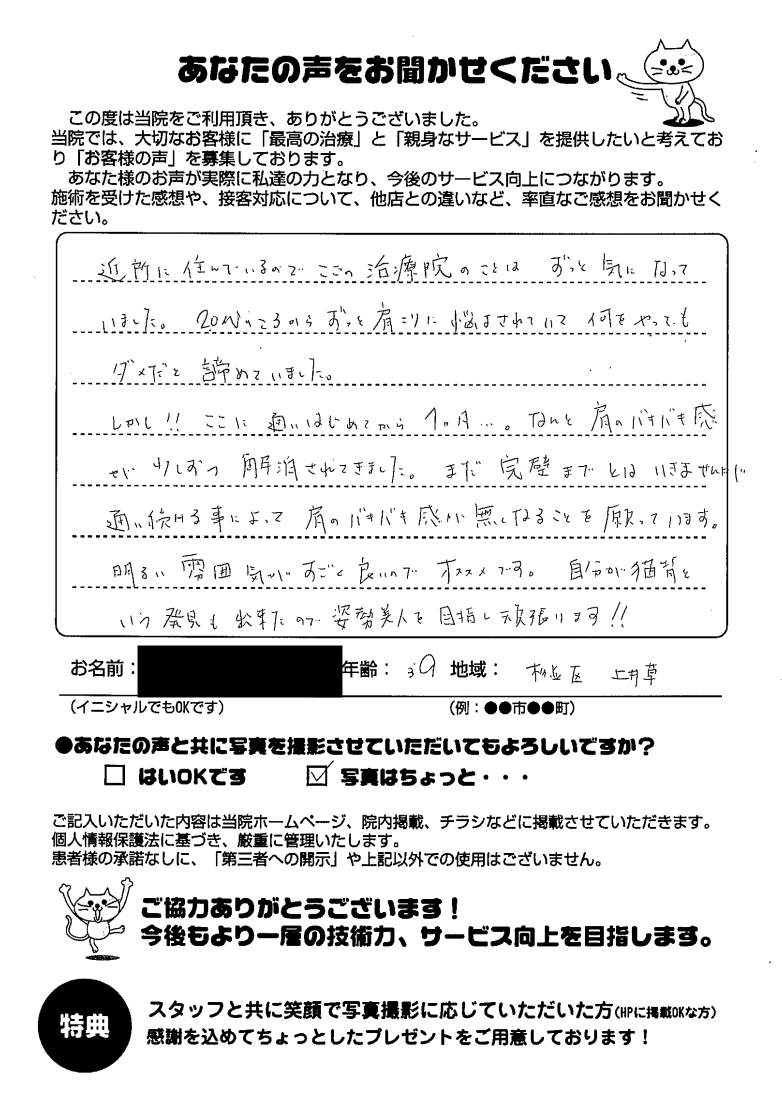 あなたの声をお聞かせください
この度は当院をご利用頂き、ありがとうございました。
当院では、大切なお客様に「最高の治療」と「親身なサービス」を提供したいと考えてお
り「お客様の声」を募集しております。
あなた様のお声が実際に私達の力となり、今後のサービス向上につながります。
施術を受けた感想や、接客対応について、他店との違いなど、率直なご感想をお聞かせく
ださい。
近所に住んでいるのでここの治療院のことは ずっと気になって
いました。20代のころからずっと肩こりに悩まされていて何をやっても
ダメだと諦めていました。
しかし!! ここに通いはじめてから1ヶ月…。なんと肩のバキバキ感
が少しずつ解消されてきました。まだ完璧までとはいきませんが
通い続ける事によって肩のバキバキ感が無くなることを願っています。
明るい雰囲気がすごく良いのでオススメです。自分が猫背と
いう発見も出来たので姿勢美人を目指し頑張ります!!
お名前： 年齢：39 地域：杉並区 上井草
（イニシャルでもOKです） （例：●●市●●町）
●あなたの声と共に写真を撮影させていただいてもよろしいですか？
□ はいOKです ☑ 写真はちょっと・・・
ご記入いただいた内容は当院ホームページ、院内掲載、チラシなどに掲載させていただきます。
個人情報保護法に基づき、厳重に管理いたします。
患者様の承諾なしに、「第三者への開示」や上記以外での使用はございません。
ご協力ありがとうございます！
今後もより一層の技術力、サービス向上を目指します。
特典
スタッフと共に笑顔で写真撮影に応じていただいた方(HPに掲載OKな方)
感謝を込めてちょっとしたプレゼントをご用意しております！